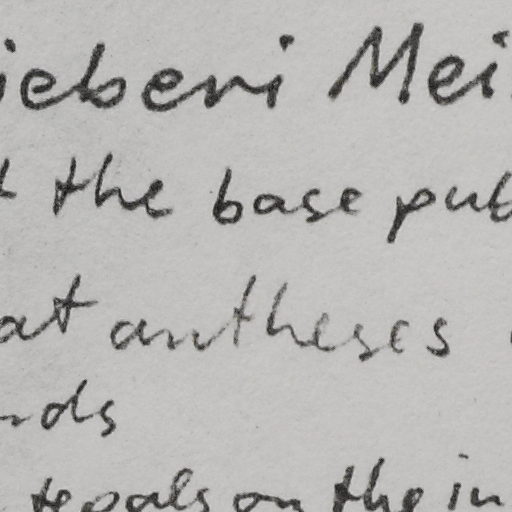 ieberi Mei
the base pub
at antheses
nds
tepals on the in